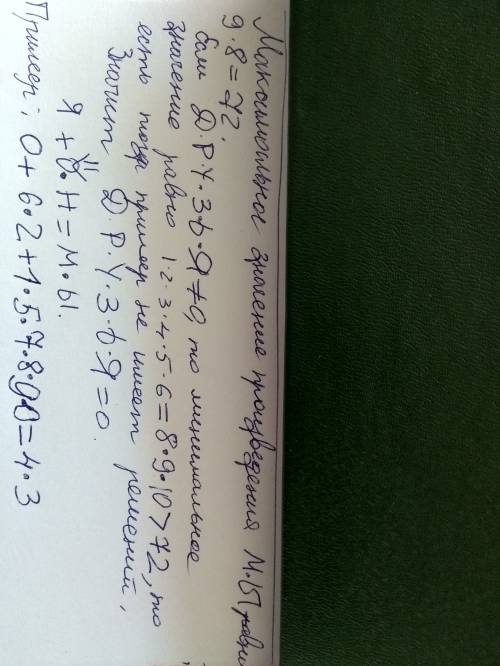 Максимальное значение произведения М·Ы равн
9·8=72.
Д·Р·У·З·Ь·Я≠0, то минимальное
значение равно 1·2·3·4·5·6=8·9·10>72, то
есть тогда пример не имеет решений,
Значит Д·Р·У·З·Ь·Я=0.
Я + Й·Н=М·Ы.
Пример: 0+6·2+1·5·7·8·9·0=4·3